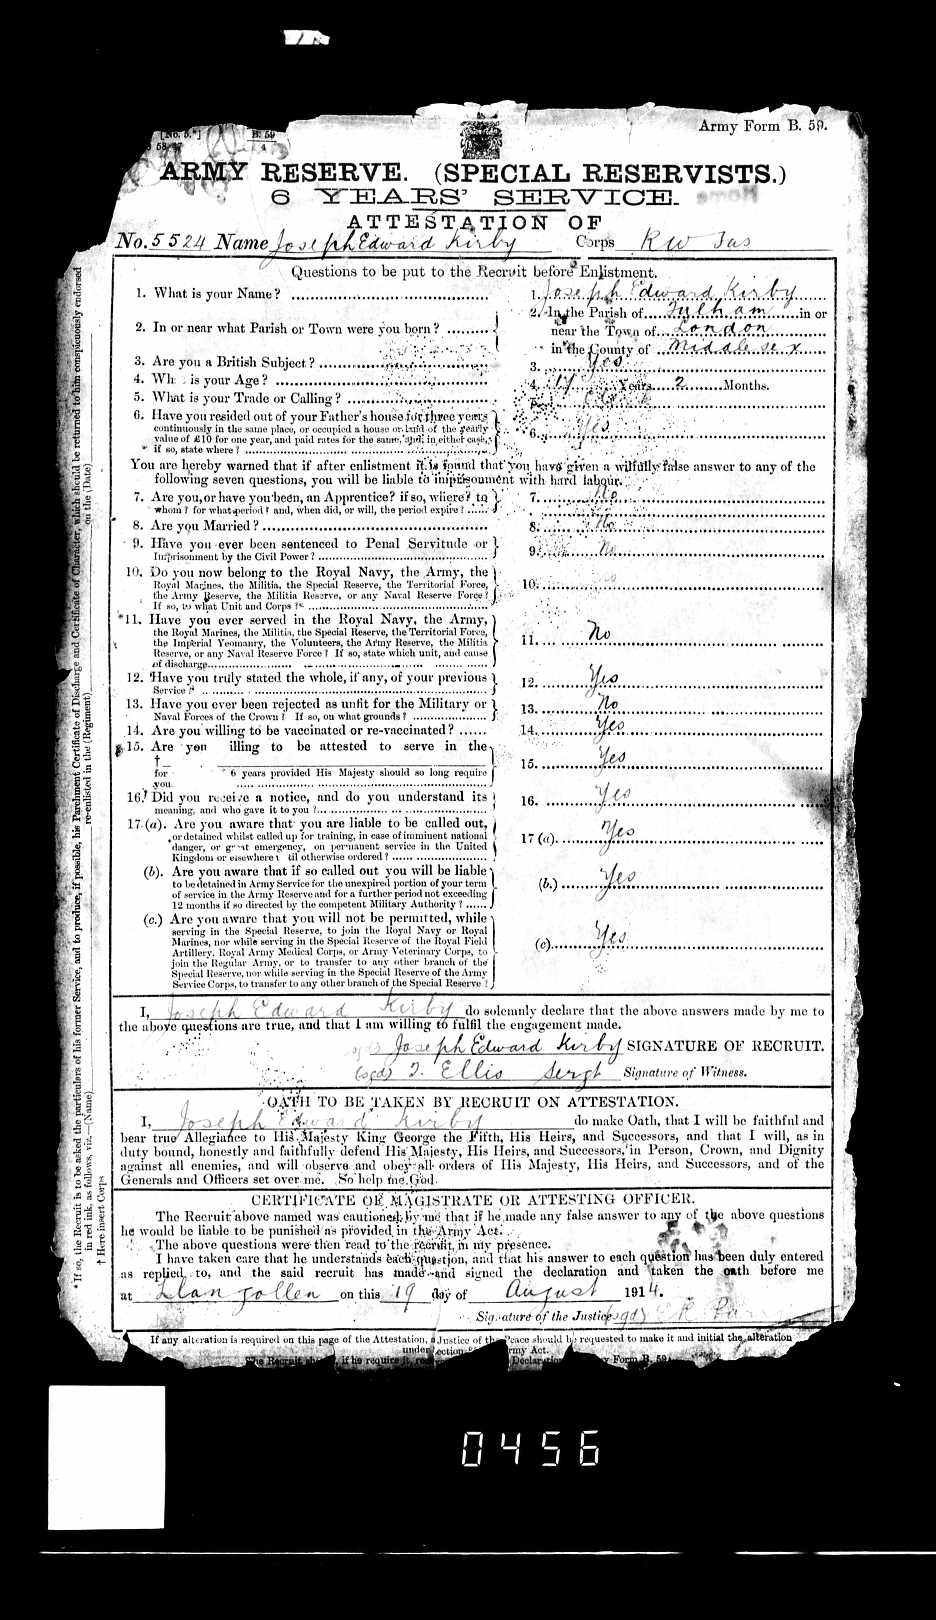 [No. 5.*]
B. 59
4
Army Form B. 59.
ARMY RESERVE. (SPECIAL RESERVISTS.)
6 YEARS' SERVICE.
ATTESTATION OF
No. 5524 Name Joseph Edward Kirby Corps R W Fus
Questions to be put to the Recruit before Enlistment.
1. What is your Name? 1. Joseph Edward Kirby
2. In or near what Parish or Town were you born? 2. In the Parish of Fulham in or
near the Town of London
in the County of Middlesex
3. Are you a British Subject? 3. Yes
4. Wh is your Age? 4. 17 Years 2 Months.
5. What is your Trade or Calling?
6. Have you resided out of your Father's house for three years 6. Yes
continuously in the same place, or occupied a house or land of the yearly
value of £10 for one year, and paid rates for the same, and, in either case,
if so, state where?
You are hereby warned that if after enlistment it is found that you have given a wilfully false answer to any of the
following seven questions, you will be liable to imprisonment with hard labour.
7. Are you, or have you been, an Apprentice? if so, where? to 7. No
whom? for what period? and, when did, or will, the period expire?
8. Are you Married? 8. No
9. Have you ever been sentenced to Penal Servitude or 9. No
Imprisonment by the Civil Power?
10. Do you now belong to the Royal Navy, the Army, the 10.
Royal Marines, the Militia, the Special Reserve, the Territorial Force,
the Army Reserve, the Militia Reserve, or any Naval Reserve Force?
If so, to what Unit and Corps?*
*11. Have you ever served in the Royal Navy, the Army, 11. No
the Royal Marines, the Militia, the Special Reserve, the Territorial Force,
the Imperial Yeomanry, the Volunteers, the Army Reserve, the Militia
Reserve, or any Naval Reserve Force? If so, state which unit, and cause
of discharge
12. Have you truly stated the whole, if any, of your previous 12. Yes
Service?
13. Have you ever been rejected as unfit for the Military or 13. No
Naval Forces of the Crown? If so, on what grounds?
14. Are you willing to be vaccinated or re-vaccinated? 14. Yes
15. Are you illing to be attested to serve in the 15. Yes
†
for 6 years provided His Majesty should so long require
you
16. Did you receive a notice, and do you understand its 16. Yes
meaning, and who gave it to you?
17 (a). Are you aware that you are liable to be called out, 17 (a). Yes
or detained whilst called up for training, in case of imminent national
danger, or great emergency, on permanent service in the United
Kingdom or elsewhere til otherwise ordered?
(b). Are you aware that if so called out you will be liable (b.) Yes
to be detained in Army Service for the unexpired portion of your term
of service in the Army Reserve and for a further period not exceeding
12 months if so directed by the competent Military Authority?
(c.) Are you aware that you will not be permitted, while (c) Yes
serving in the Special Reserve, to join the Royal Navy or Royal
Marines, nor while serving in the Special Reserve of the Royal Field
Artillery, Royal Army Medical Corps, or Army Veterinary Corps, to
join the Regular Army, or to transfer to any other branch of the
Special Reserve, nor while serving in the Special Reserve of the Army
Service Corps, to transfer to any other branch of the Special Reserve?
I, Joseph Edward Kirby do solemnly declare that the above answers made by me to
the above questions are true, and that I am willing to fulfil the engagement made.
Joseph Edward Kirby SIGNATURE OF RECRUIT.
(sgd) J. Ellis Sergt Signature of Witness.
OATH TO BE TAKEN BY RECRUIT ON ATTESTATION.
I, Joseph Edward Kirby do make Oath, that I will be faithful and
bear true Allegiance to His Majesty King George the Fifth, His Heirs, and Successors, and that I will, as in
duty bound, honestly and faithfully defend His Majesty, His Heirs, and Successors, in Person, Crown, and Dignity
against all enemies, and will observe and obey all orders of His Majesty, His Heirs, and Successors, and of the
Generals and Officers set over me. So help me God.
CERTIFICATE OF MAGISTRATE OR ATTESTING OFFICER.
The Recruit above named was cautioned by me that if he made any false answer to any of the above questions
he would be liable to be punished as provided in the Army Act.
The above questions were then read to the recruit in my presence.
I have taken care that he understands each question, and that his answer to each question has been duly entered
as replied to, and the said recruit has made and signed the declaration and taken the oath before me
at Llangollen on this 19 day of August 1914.
Signature of the Justice (sgd)
If any alteration is required on this page of the Attestation, a Justice of the Peace should be requested to make it and initial the alteration
under ection rmy Act.
The Recruit if he require it, Declaration Form B. 59
* If so, the Recruit is to be asked the particulars of his former Service, and to produce, if possible, his Parchment Certificate of Discharge and Certificate of Character, which should be returned to him conspicuously endorsed
in red ink, as follows, viz.—(Name) re-enlisted in the (Regiment) on the (Date)
† Here insert Corps
0456